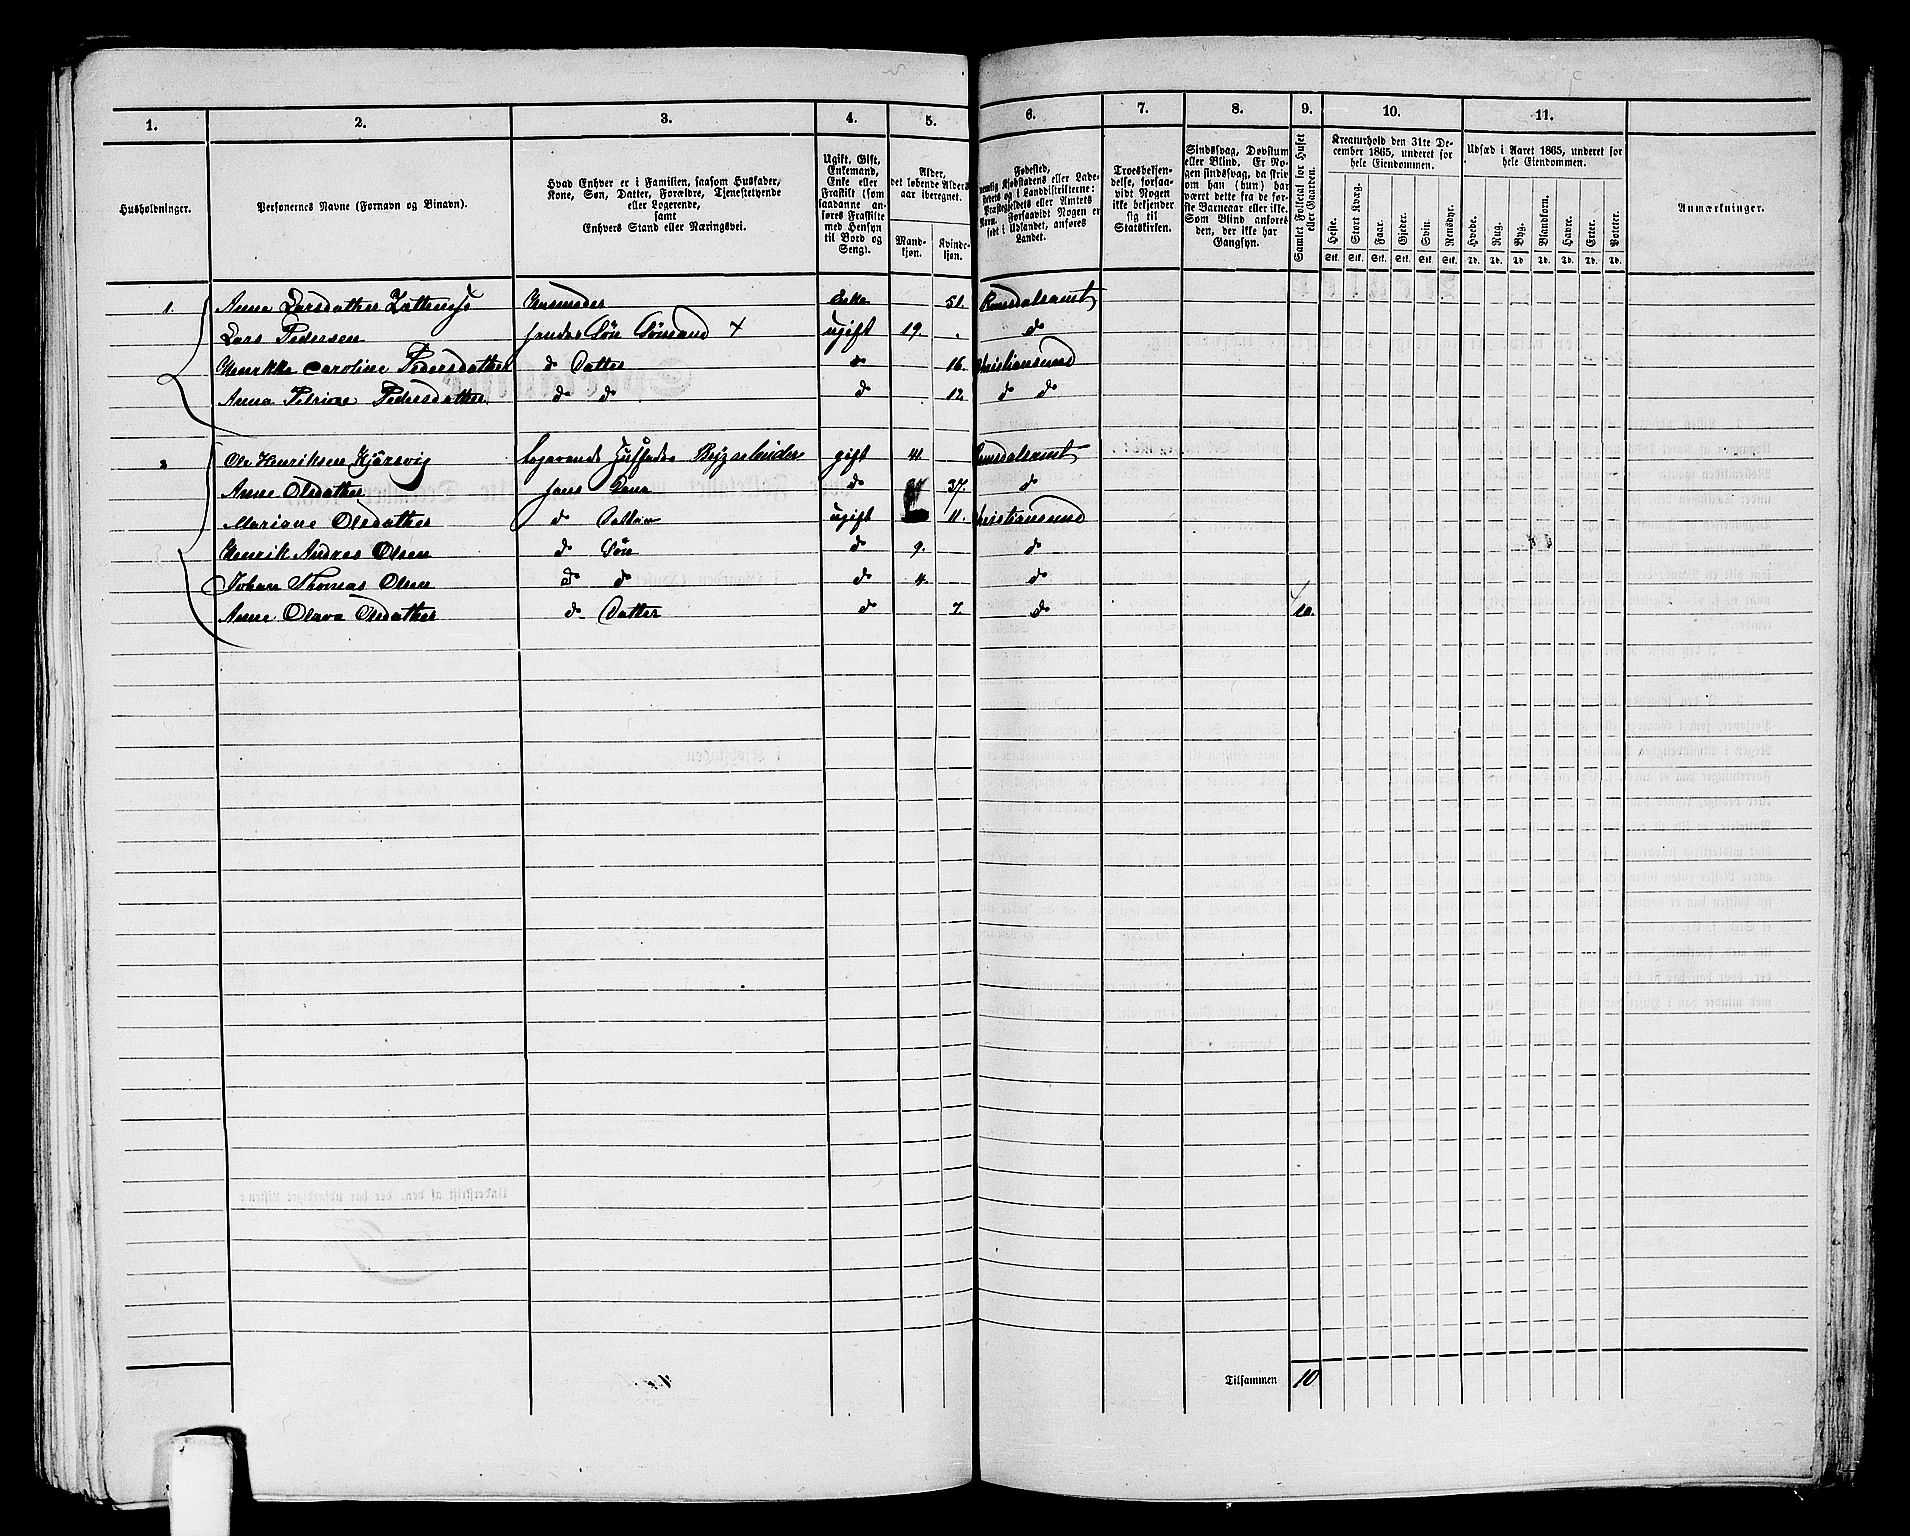 1. 2. 3. 4. 5. 6. 7. 8. 9. 10. 11.
Husholdninger.
Personernes Navne (Fornavn og Binavn).
Hvad Enhver er i Familien, saasom Husfader,
Kone, Søn, Datter, Forældre, Tjenestetyende
eller Logerende,
samt
Enhvers Stand eller Næringsvei.
Ugift, Gift,
Enkemand,
Enke eller
Fraskilt (som
saadanne an-
føres Fraskilte
med Hensyn
til Bord og
Seng).
Alder,
det løbende Alders-
aar iberegnet.
Mand-
kjøn.
Kvinde-
kjøn.
Fødested,
nemlig Kjøbstadens eller Lade-
stedets og i Landdistrikterne:
Præstegjeldets eller Amtets
Navn. Forsaavidt Nogen er
født i Udlandet, anføres
Landet.
Troesbekjen-
delse, forsaa-
vidt Nogen
ikke bekjender
sig til
Statskirken.
Sindssvag, Døvstum
eller Blind. Er No-
gen sindssvag, da skriv
om han (hun) har
været dette fra de før-
ste Barneaar eller ikke.
Som Blind anføres
den, der ikke har
Gangsyn.
Samlet Folketal for Huset
eller Gaarden.
Kreaturhold den 31te De-
cember 1865, underet for
hele Eiendommen.
Heste. Stort Kvæg. Faar. Gjeder. Svin. Rensdyr.
Stk. Stk. Stk. Stk. Stk. Stk.
Udsæd i Aaret 1865, underet for
hele Eiendommen.
Hvede. Rug. Byg. Blandkorn. Havre. Erter. Poteter.
Td. Td. Td. Td. Td. Td. Td.
Anmærkninger.
1. Anna Larsdatter Enke 51. Romsdalsamt
Lars Pedersen Søn Sömand + ugift 19. do
Caroline Pedersdatter do Datter do 16. Christiansund
Anna Petrine Pedersdatter do do do 12. do do
2 Ole Henriksen Kjörsvig Logerende gift 41 Romsdalsamt
Anne Olsdatter hans Kone do 37. do
Mariane Olsdatter do Datter ugift 11. Christiansund
Henrik Andres Olsen do Sön do 9. do
Johan Thomas Olsen do do do 4. do
Anne Olava Olsdatter do Datter do 7. do 10.
Tilsammen 10